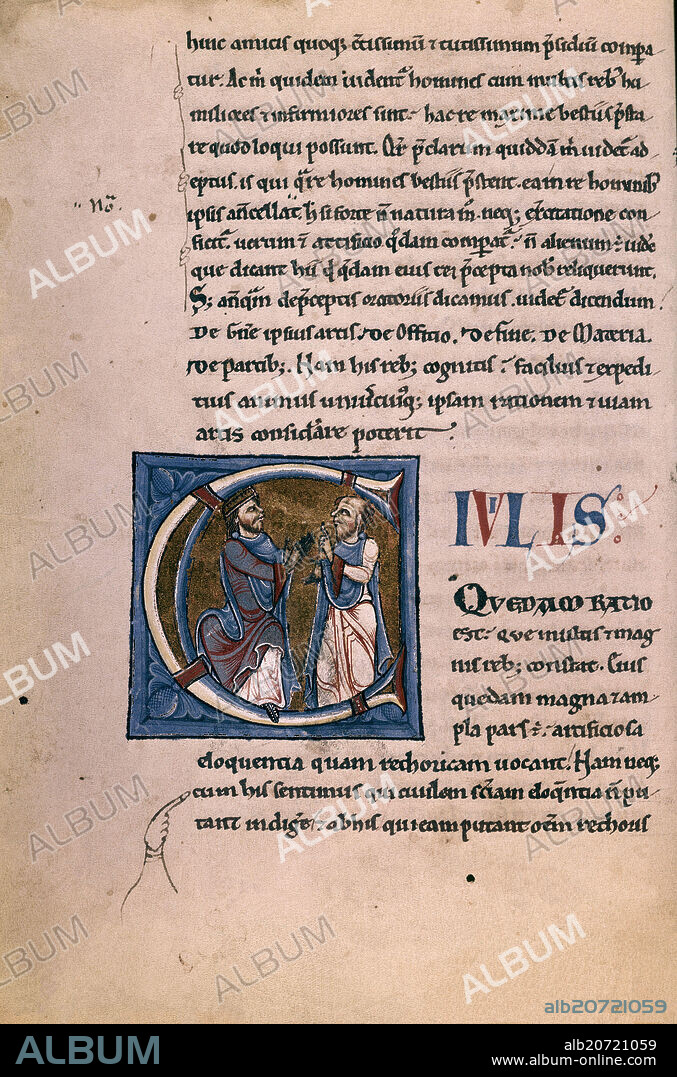 hinc amicis quoq; c̄tissimum ⁊ tutissimum p̄sidiū compa
tur. Ac m̄ quidem uident̄ homines cum multis reb; hu
miliores ⁊ infirmiores sint. hac re maxime bestiis p̄sta
re quod loqui possunt. Qr̄ p̄clarum quiddā m̄ uidet̄ ad
eptus. is qui q̄ re homines bestiis p̄stent. ea in re hominib;
ipsis an̄cellat. h̄ si forte n̄ natura m̄. neq; exc̄itatione con
ficit̄. uerum ⁊ artificio q̄dam comparat̄. n̄ alienum ÷ uide
que dicant hii q̄ q̄dam eius rei p̄cepta nob̄ reliquerunt.
S; an̄q̄m de p̄ceptis oratoriis dicamus. uidet̄ dicendum
De gn̄e ipsius artis. De Officio. De fine. De Materia.
De partib;. Nam his reb; cognitis facilius ⁊ expedi
tius animus uniuscuiq; ipsam rationem ⁊ uiam
artis considerare poterit.
"No͞.
C
IVLIS
QVEDAM RATIO
est. que multis ⁊ mag
nis reb; constat. Eius
quedam magna ⁊ am
pla pars ÷. artificiosa
eloquentia quam rethoricam uocant. Nam neq;
cum his sentimus qui ciuilem sc̄iam eloq̄ntia n̄ pu
tant indiḡe. ⁊ ab his qui eam putant om̄em rethoris
ALBUM
alb20721059
ALBUM
alb20721059
www.album-online.com